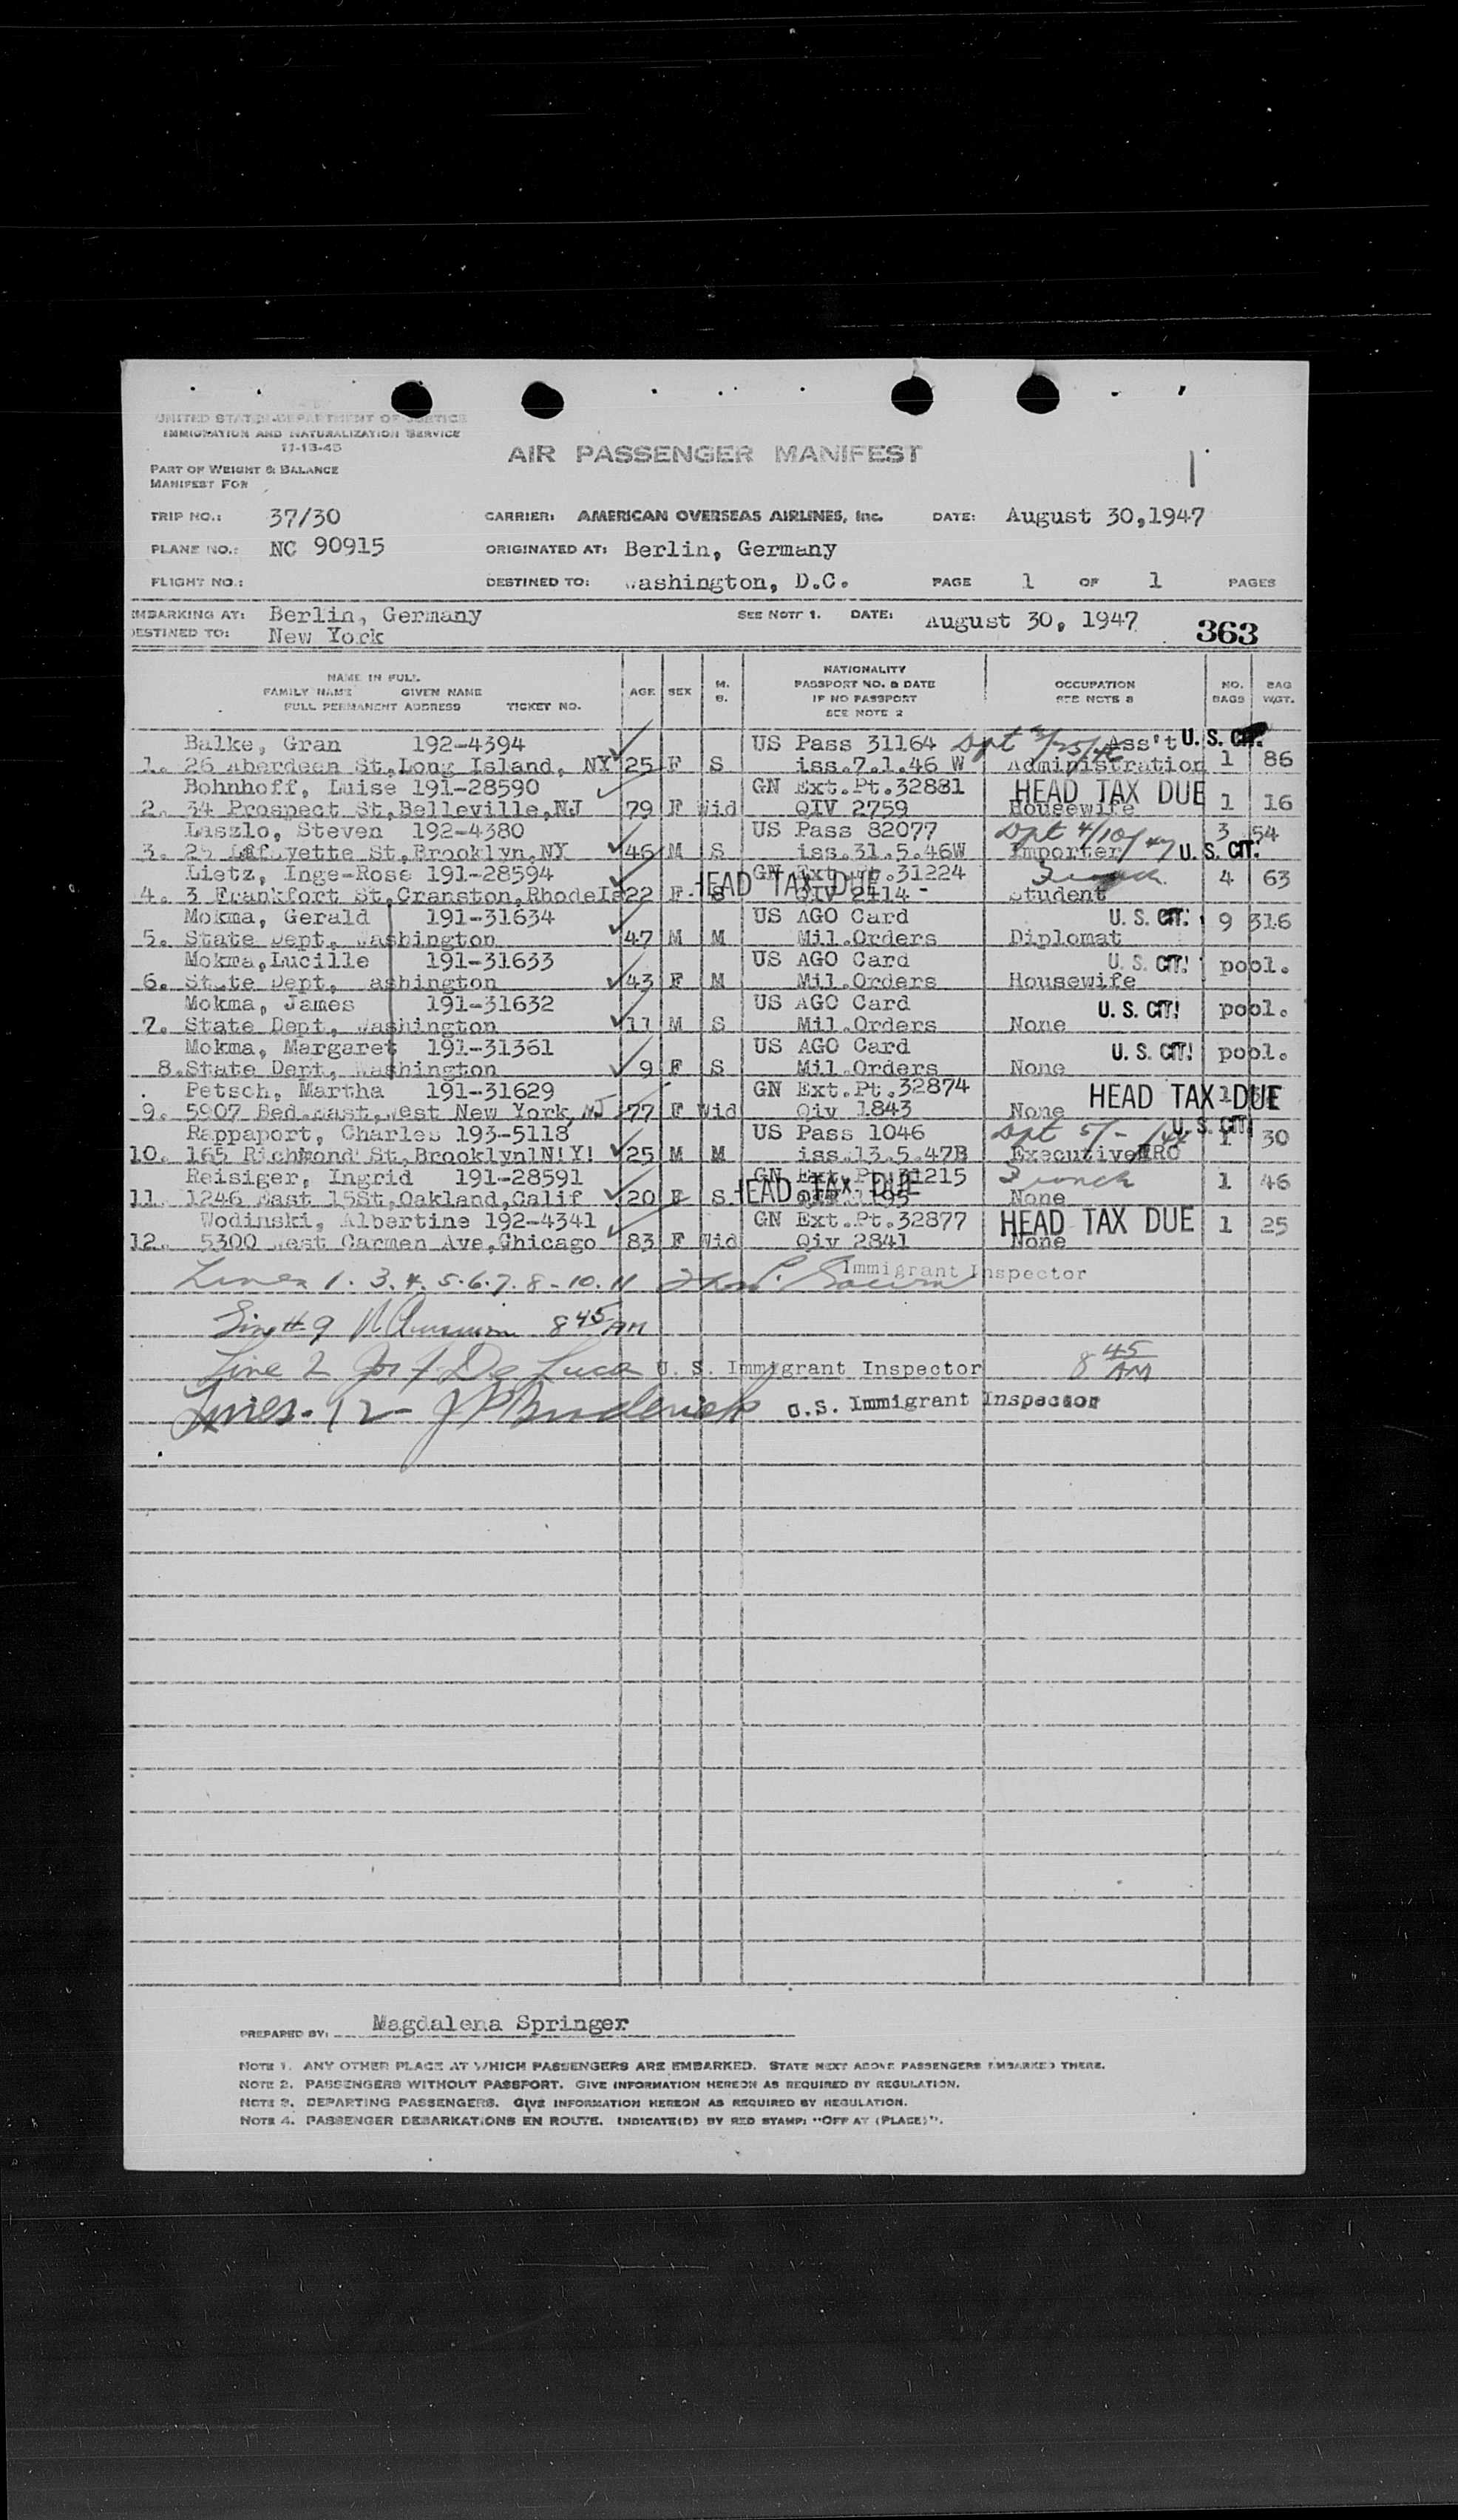 UNITED STATES DEPARTMENT OF JUSTICE
IMMIGRATION AND NATURALIZATION SERVICE
11-13-45
AIR PASSENGER MANIFEST
PART OF WEIGHT & BALANCE
MANIFEST FOR
TRIP NO.: 37/30 CARRIER: AMERICAN OVERSEAS AIRLINES, Inc. DATE: August 30,1947
PLANE NO.: NC 90915 ORIGINATED AT: Berlin, Germany
FLIGHT NO.: DESTINED TO: Washington, D.C. PAGE 1 OF 1 PAGES
EMBARKING AT: Berlin, Germany SEE NOTE 1. DATE: August 30, 1947
DESTINED TO: New York 363
NAME IN FULL
FAMILY NAME GIVEN NAME
FULL PERMANENT ADDRESS TICKET NO.
AGE SEX M. S.
NATIONALITY
PASSPORT NO. & DATE
IF NO PASSPORT
SEE NOTE 2
OCCUPATION
SEE NOTE 3
NO. BAGS
BAG WGT.
Balke, Gran 192-4394 US Pass 31164 Dpt Ass't U.S. CIT.
1. 26 Aberdeen St,Long Island, NY 25 F S iss.7.1.46 W Administration 1 86
Bohnhoff, Luise 191-28590 GN Ext.Pt.32881 HEAD TAX DUE
2. 34 Prospect St,Belleville,NJ 79 F Wid QIV 2759 Housewife 1 16
Laszlo, Steven 192-4380 US Pass 82077 Dpt 4/10/47 3 54
3. 25 Lafayette St,Brooklyn,NY 46 M S iss.31.5.46W Importer U.S. CIT.
Lietz, Inge-Rose 191-28594 GN Ext.Pt.31224 HEAD TAX DUE 4 63
4. 3 Frankfort St,Cranston,RhodeIs 22 F S QIV 2414 - Student
Mokma, Gerald 191-31634 US AGO Card U.S. CIT. 9 316
5. State Dept, Washington 47 M M Mil.Orders Diplomat
Mokma,Lucille 191-31633 US AGO Card U.S. CIT! pool.
6. State Dept, Washington 43 F M Mil.Orders Housewife
Mokma, James 191-31632 US AGO Card U.S. CIT! pool.
7. State Dept, Washington 11 M S Mil.Orders None
Mokma, Margaret 191-31361 US AGO Card U.S. CIT! pool.
8.State Dept, Washington 9 F S Mil.Orders None
Petsch, Martha 191-31629 GN Ext.Pt.32874 HEAD TAX DUE
9. 5907 Bed.East,West New York,NJ 77 F Wid Qiv 1843 None
Rappaport, Charles 193-5118 US Pass 1046 Dpt U.S. CIT. 1 30
10. 165 Richmond St,Brooklyn1N!Y! 25 M M iss.13.5.47B Executive
Reisiger, Ingrid 191-28591 GN Ext.Pt.31215 HEAD TAX DUE 1 46
11. 1246 East 15St,Oakland,Calif 20 F S None
Wodinski, Albertine 192-4341 GN Ext.Pt.32877 HEAD TAX DUE 1 25
12. 5300 West Carmen Ave,Chicago 83 F Wid Qiv 2841 None
Lines 1. 3. 4. 5. 6. 7. 8 - 10. 11 Immigrant Inspector
Line # 9 8 45 AM
Line 2 Jos F De Luca U. S. Immigrant Inspector 8 45 AM
Lines - 12 - J P Broderick U.S. Immigrant Inspector
PREPARED BY: Magdalena Springer
NOTE 1. ANY OTHER PLACE AT WHICH PASSENGERS ARE EMBARKED. STATE NEXT ABOVE PASSENGERS EMBARKED THERE.
NOTE 2. PASSENGERS WITHOUT PASSPORT. GIVE INFORMATION HEREON AS REQUIRED BY REGULATION.
NOTE 3. DEPARTING PASSENGERS. GIVE INFORMATION HEREON AS REQUIRED BY REGULATION.
NOTE 4. PASSENGER DEBARKATIONS EN ROUTE. INDICATE(D) BY RED STAMP: "OFF AT (PLACE)".